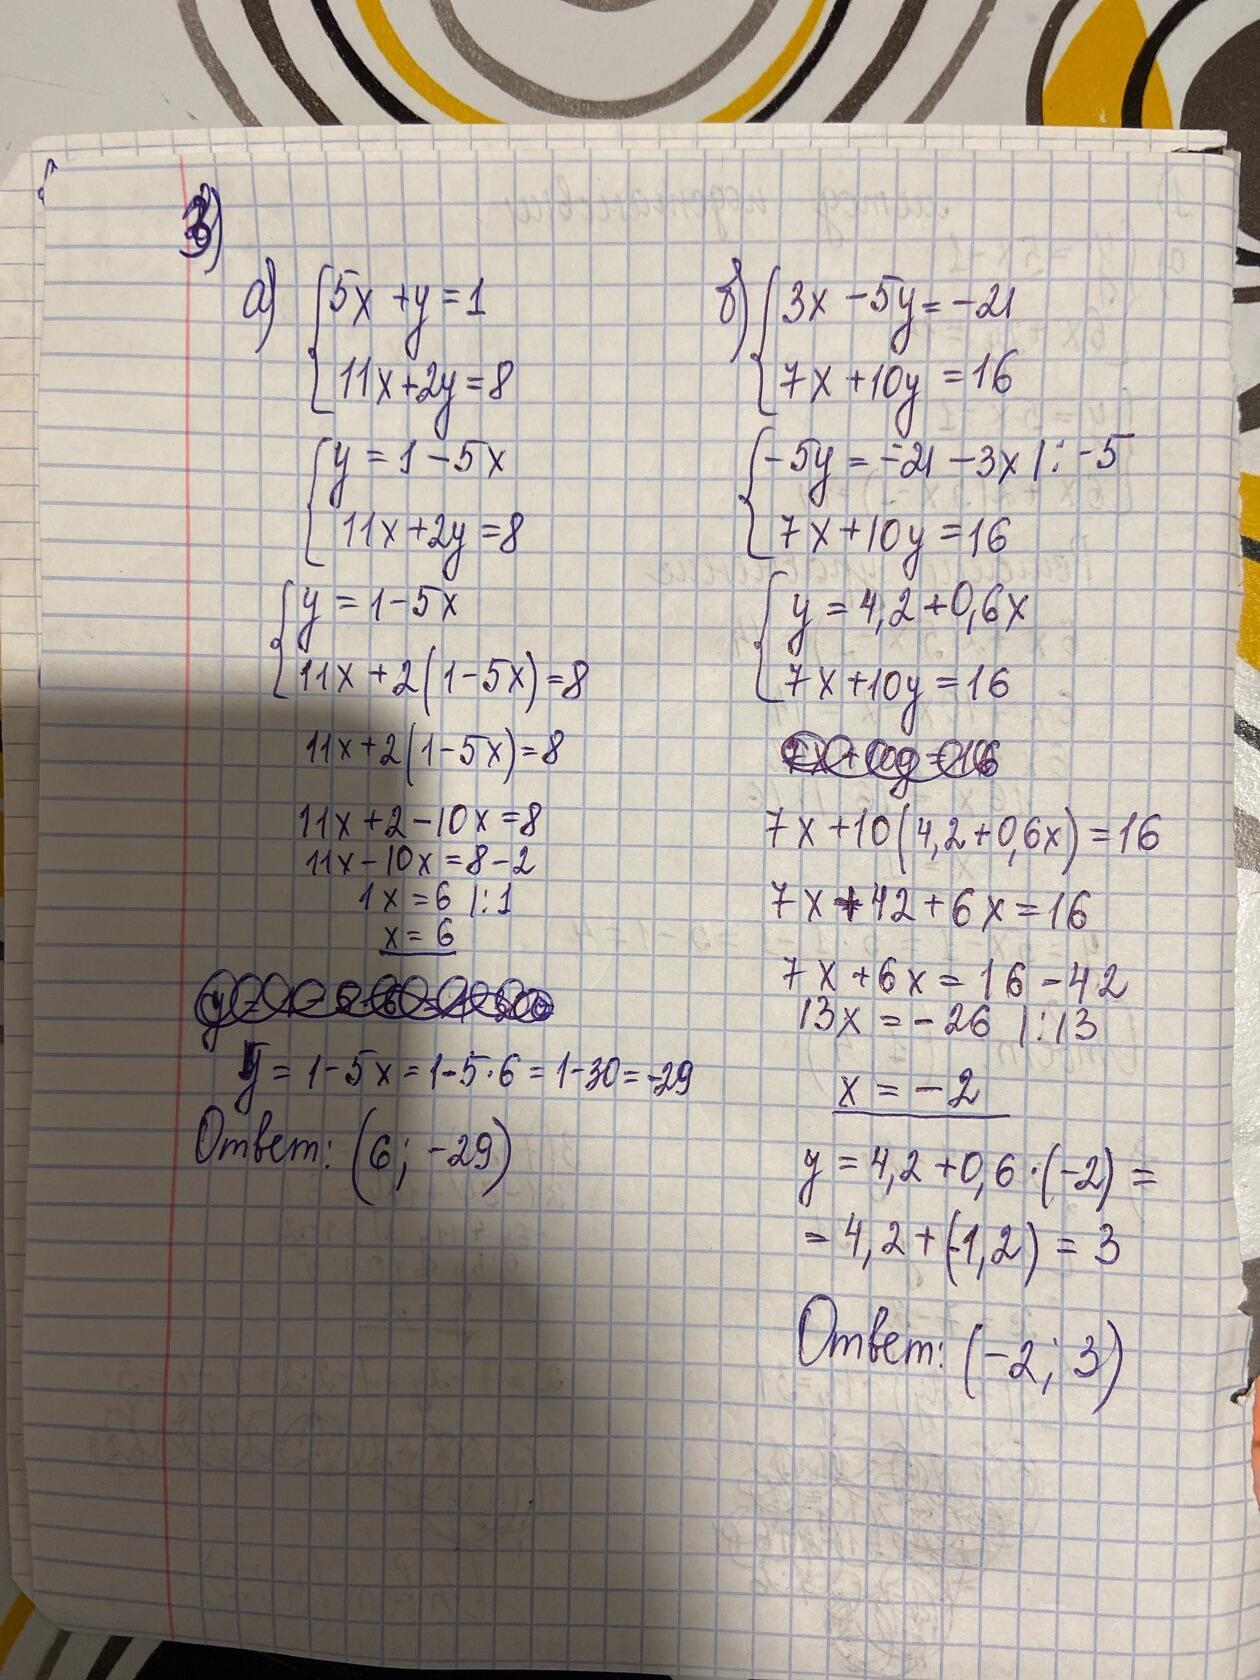 3)
а) 5x + y = 1
11x + 2y = 8
y = 1 - 5x
11x + 2y = 8
y = 1 - 5x
11x + 2(1 - 5x) = 8
11x + 2(1 - 5x) = 8
11x + 2 - 10x = 8
11x - 10x = 8 - 2
1x = 6 |:1
x = 6
y = 1 - 5x = 1 - 5·6 = 1 - 30 = -29
Ответ: (6; -29)
б) 3x - 5y = -21
7x + 10y = 16
-5y = -21 - 3x |: -5
7x + 10y = 16
y = 4,2 + 0,6x
7x + 10y = 16
7x + 10(4,2 + 0,6x) = 16
7x + 42 + 6x = 16
7x + 6x = 16 - 42
13x = -26 |:13
x = -2
y = 4,2 + 0,6·(-2) =
= 4,2 + (-1,2) = 3
Ответ: (-2; 3)